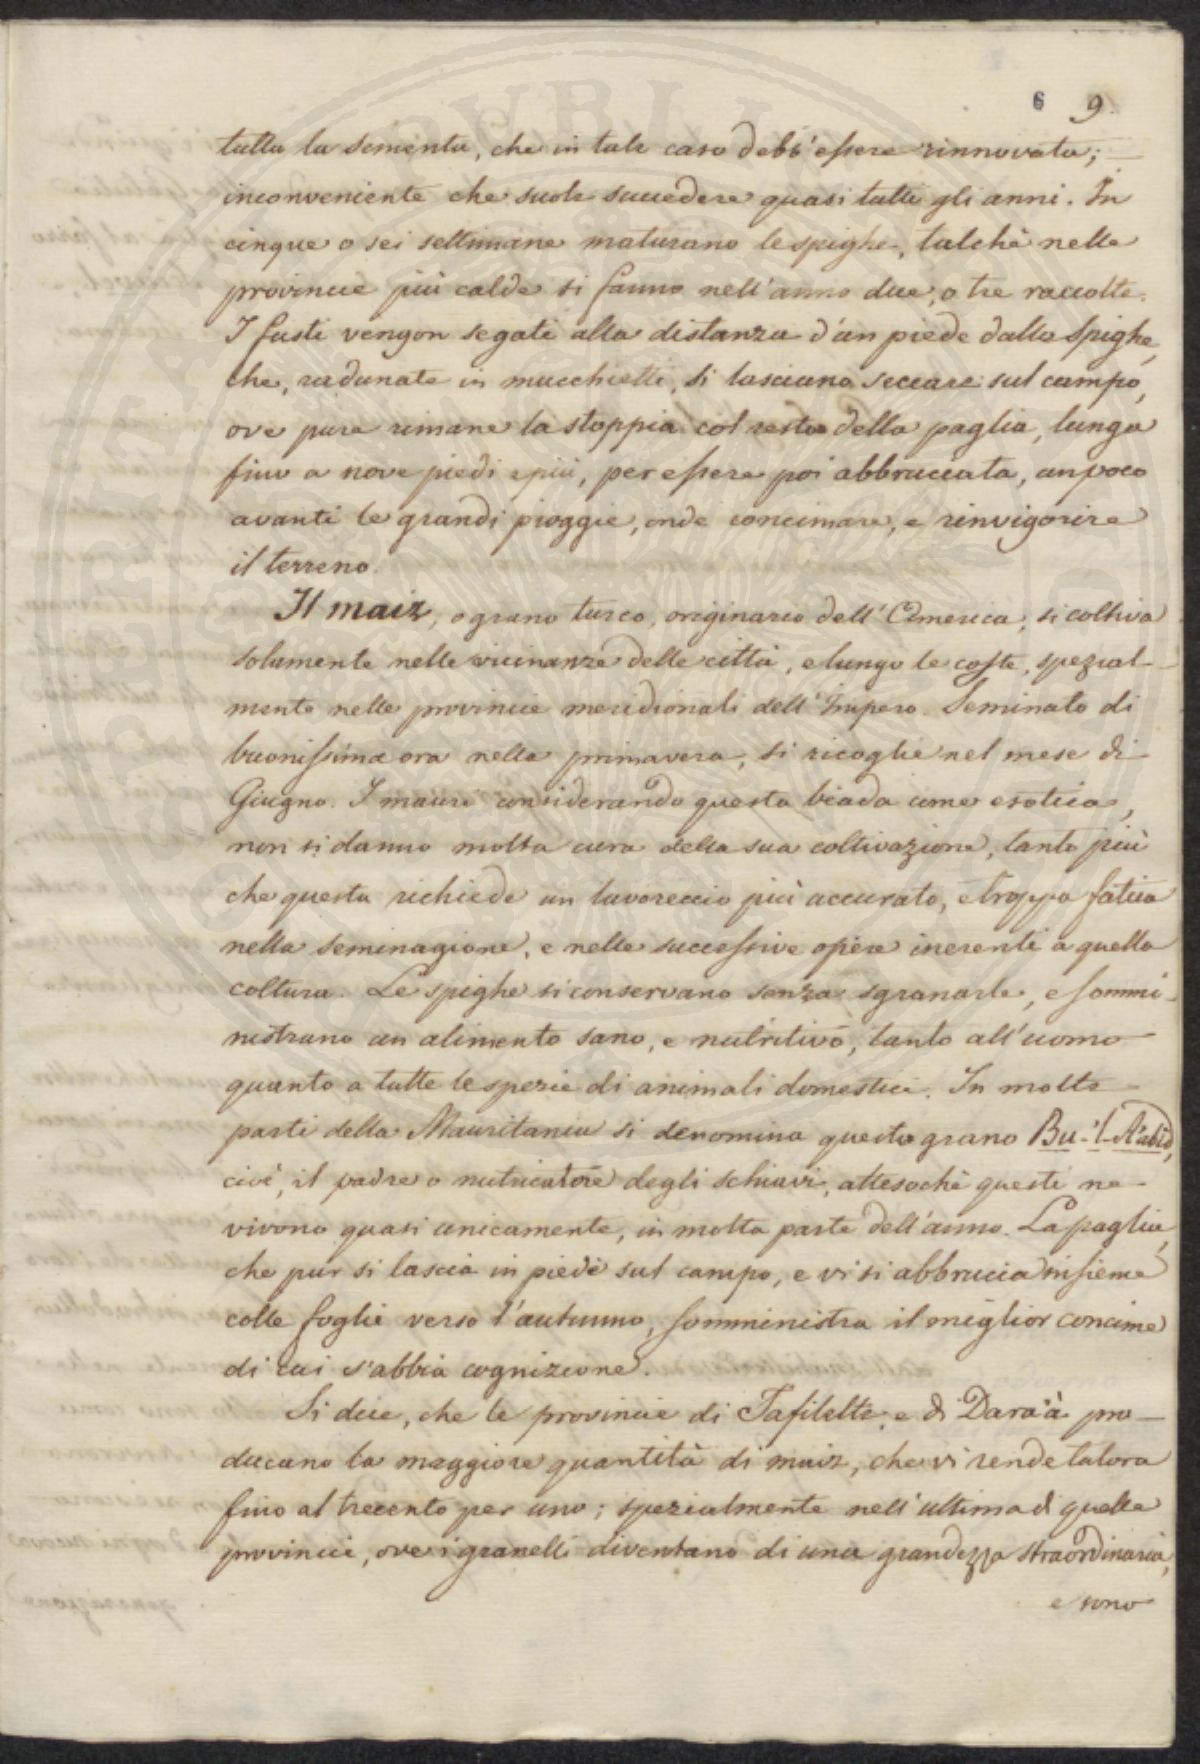 6 9.
tutta la sementa, che in tale caso debb'essere rinnovata;
inconveniente che suole succedere quasi tutti gli anni. In
cinque o sei settimane maturano le spighe, talchè nelle
provincie più calde si fanno nell'anno due, o tre raccolte.
I fusti vengon segati alla distanza d'un piede dalle spighe,
che, radunate in mucchietti, si lasciano seccare sul campo,
ove pure rimane la stoppia col resto della paglia, lunga
fino a nove piedi e più, per essere poi abbruciata, un poco
avanti le grandi pioggie, onde concimare, e rinvigorire
il terreno.
Il maiz, o grano turco, originario dell'America, si coltiva
solamente nelle vicinanze delle città, e lungo le coste, spezial-
mente nelle provincie meridionali dell'Impero. Seminato di
buonissima ora nella primavera, si ricoglie nel mese di
Giugno. I mauri considerando questa biada come esotica,
non si danno molta cura della sua coltivazione, tanto più
che questa richiede un lavoreccio più accurato, e troppa fatica
nella seminagione, e nelle successive opere inerenti a quella
coltura. Le spighe si conservano senza sgranarle, e sommi-
nistrano un alimento sano, e nutritivo, tanto all'uomo
quanto a tutte le spezie di animali domestici. In molte
parti della Mauritania si denomina questo grano Bu-'l-A'abid,
cioè, il padre o nutricatore degli schiavi, attesochè questi ne
vivono quasi unicamente, in molta parte dell'anno. La paglia,
che pur si lascia in piedi sul campo, e vi si abbrucia insieme
colle foglie verso l'autunno, somministra il miglior concime
di cui s'abbia cognizione.
Si dice, che le provincie di Tafilelte, e di Dara'à pro-
ducano la maggiore quantità di maiz, che vi rende talora
fino al trecento per uno; spezialmente nell'ultima di quelle
provincie, ove i granelli diventano di una grandezza straordinaria,
e sono